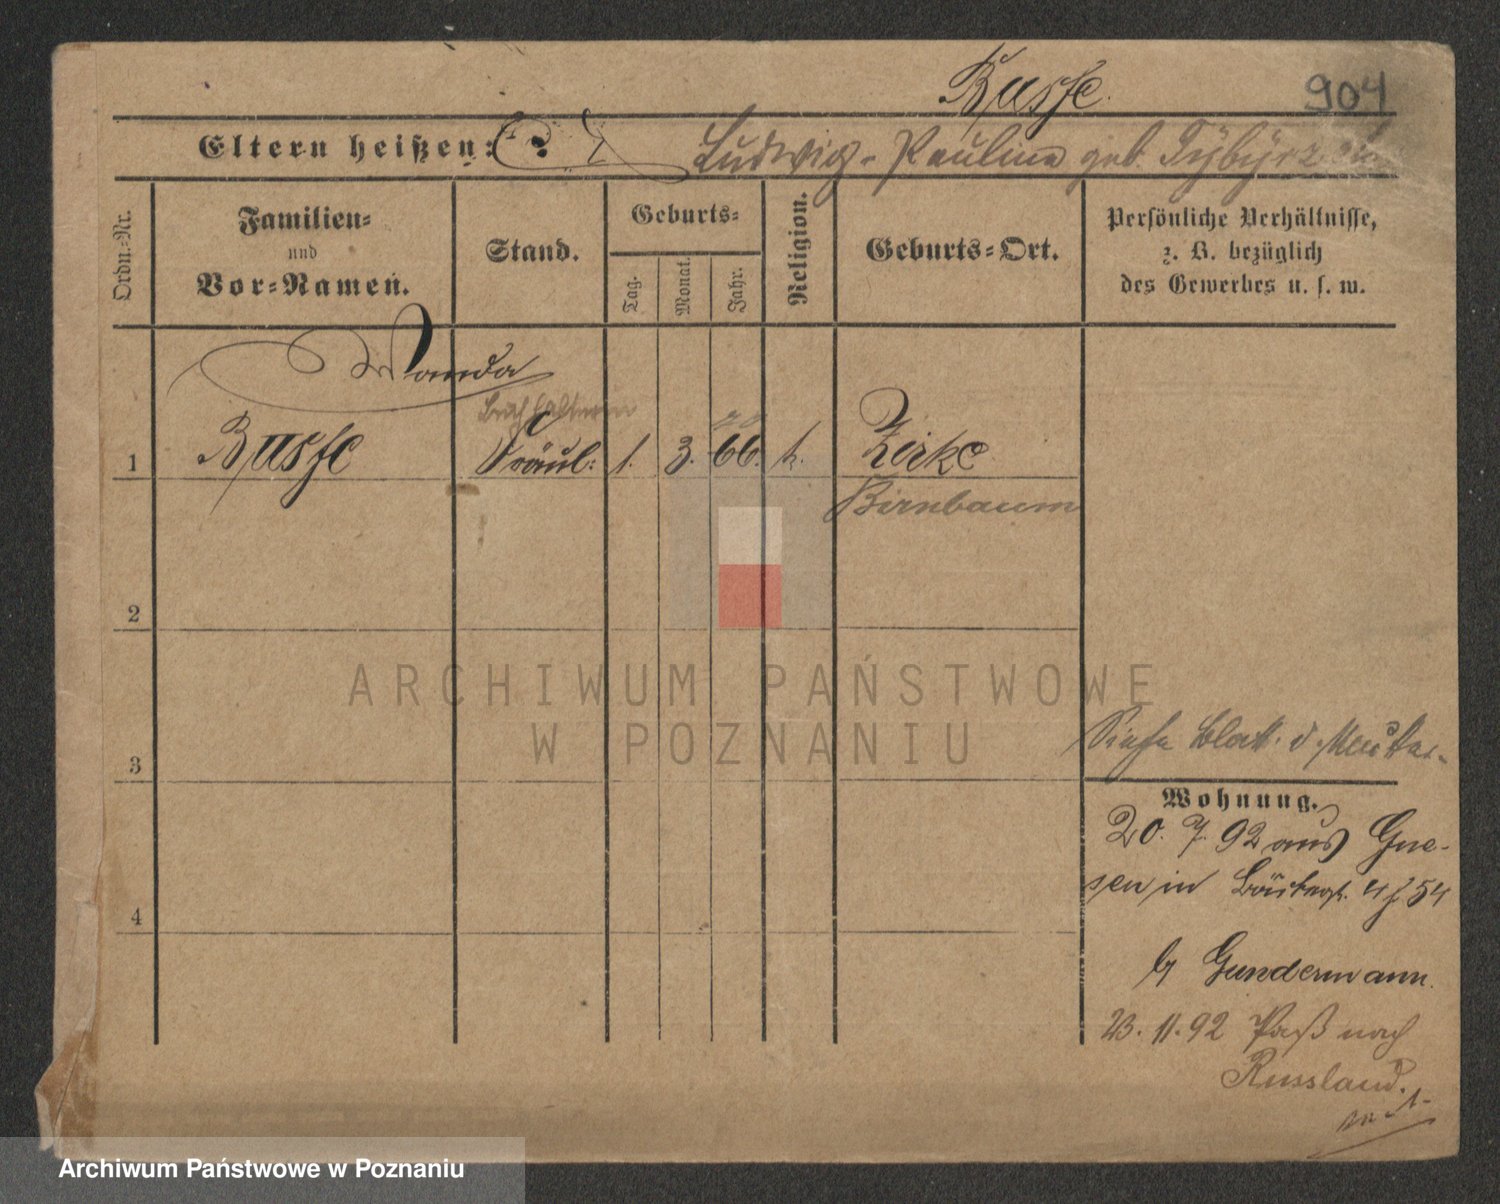 Busse
904
Eltern heißen: Ludwig - Pauline geb.
Ordn.-Nr.
Familien-
und
Vor-Namen.
Stand.
Geburts-
Tag.
Monat.
Jahr.
Religion.
Geburts-Ort.
Persönliche Verhältnisse,
z. B. bezüglich
des Gewerbes u. s. w.
Wanda
Buchhalterin
1 Busse Fräul: 1. 3. 66. k. Zirke
Birnbaum
2
3
4
Siehe Blatt d Mutter.
Wohnung.
20. 7. 92 aus Gne-
sen in 4/54
b/ Gundermann.
23. 11. 92 Paß nach
Russland.
ARCHIWUM PAŃSTWOWE
W POZNANIU
Archiwum Państwowe w Poznaniu